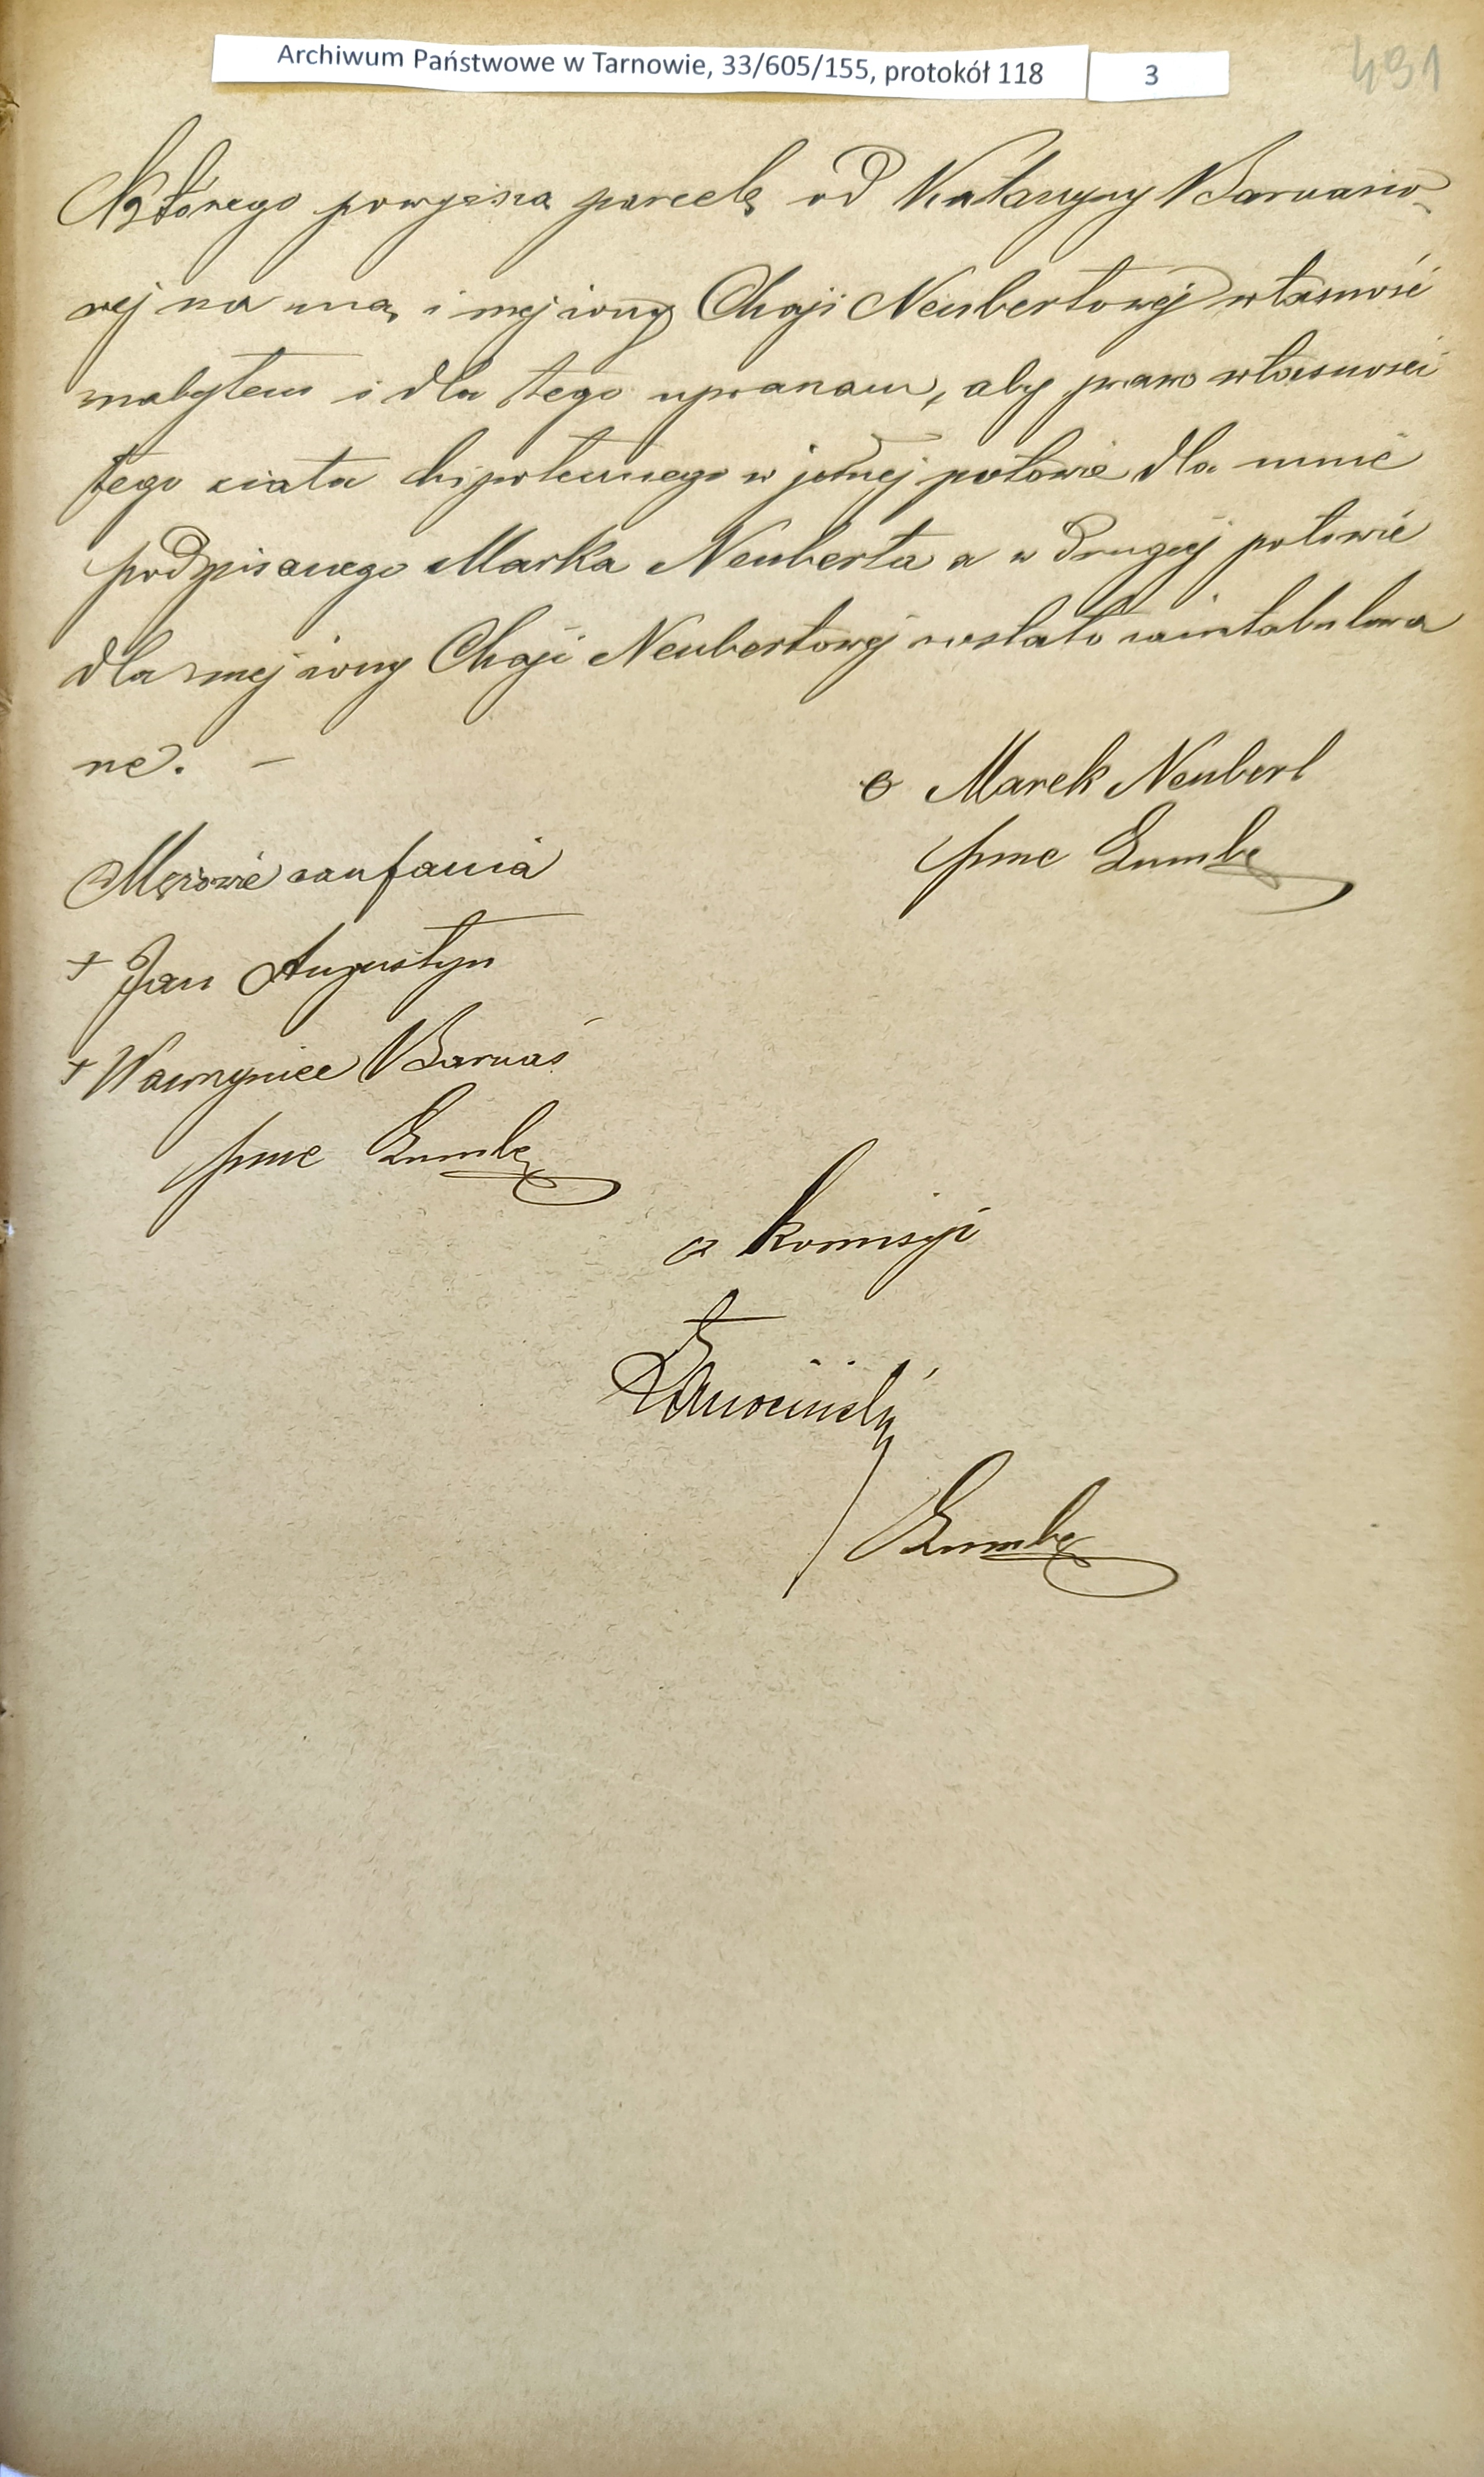 Archiwum Państwowe w Tarnowie, 33/605/155, protokół 118
3
491
którego powyższą parcelę od Katarzyny Barnasio-
wej na mą i mej żony Chaji Neubertowej własność
nabyłem i dla tego upraszam, aby prawo własności
tego ciała hipotecznego w jednej połowie dla mnie
podpisanego Marka Neuberta a w drugiej połowie
dla mej żony Chaji Neubertowej zostało zaintabulowa
ne. —
o Marek Neubert
pme Zumbe
Mężowie zaufania
+ Jan Augustyn
+ Wawrzyniec Barnaś
pme Zumbe
z komisyi
Zumbe